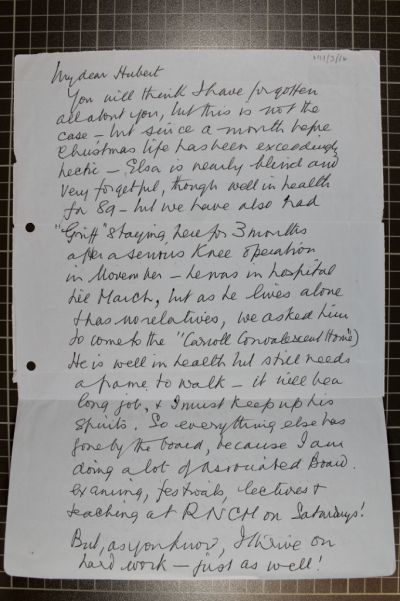 My dear Hubert
You will think I have forgotten
all about you, but this is not the
case – but since a month before
Christmas life has been exceedingly
hectic – Elsa is nearly blind and
very forgetful, though well in health
for 89 – but we have also had
"Griff" staying here for 3 months
after a serious knee operation
in November – he was in hospital
till March, but as he lives alone
& has no relatives, we asked him
to come to the "Carroll Convalescent Home")
He is well in health but still needs
a frame to walk – it will be a
long job, & I must keep up his
spirits. So everything else has
gone by the board, because I am
doing a lot of Associated Board
examing, festivals, lectures &
teaching at RNCM on Saturdays!
But, as you know, I thrive on
hard work – just as well!